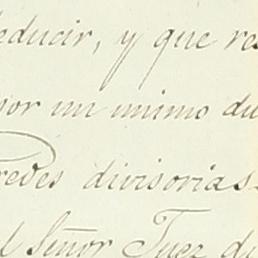 educir, y que re
por un mismo du
redes divisorias
l Señor Juez de